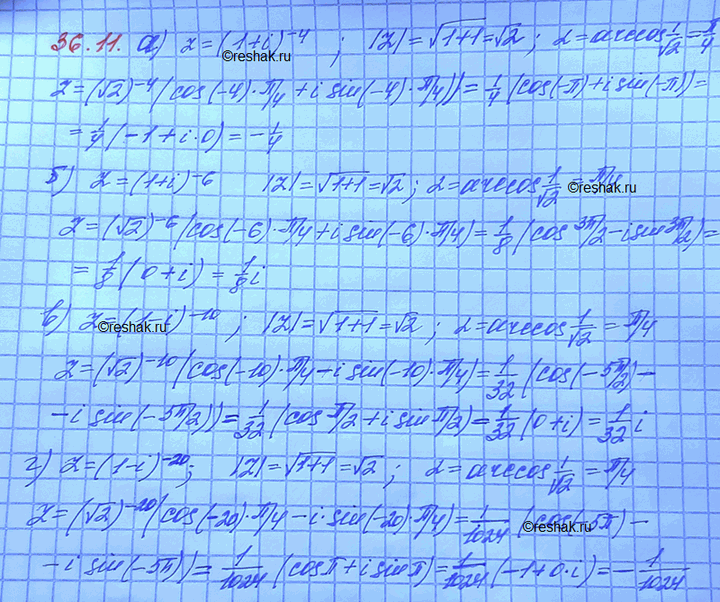 36.11. а) z=(1+i)⁻⁴ ; |z|=√1+1=√2 ; α=arccos 1/√2 = π/4
©reshak.ru
z=(√2)⁻⁴(cos(-4)·π/4+i sin(-4)·π/4))=1/4(cos(-π)+i sin(-π))=
=1/4(-1+i·0)=-1/4
б) z=(1+i)⁻⁶ |z|=√1+1=√2; α=arccos 1/√2=π/4
©reshak.ru
z=(√2)⁻⁶(cos(-6)·π/4+i sin(-6)·π/4)=1/8(cos 3π/2-i sin 3π/2)=
=1/8(0+i)=1/8 i
в) z=(1-i)⁻¹⁰ ; |z|=√1+1=√2 ; α=arccos 1/√2=π/4
©reshak.ru
z=(√2)⁻¹⁰(cos(-10)·π/4-i sin(-10)·π/4)=1/32(cos(-5π/2)-
-i sin(-5π/2))=1/32(cos π/2+i sin π/2)=1/32(0+i)=1/32 i
г) z=(1-i)⁻²⁰; |z|=√1+1=√2 ; α=arccos 1/√2=π/4
z=(√2)⁻²⁰(cos(-20)·π/4-i·sin(-20)·π/4)=1/1024(cos(-5π)-
©reshak.ru
-i sin(-5π))=1/1024(cosπ+i sinπ)=1/1024(-1+0·i)=-1/1024